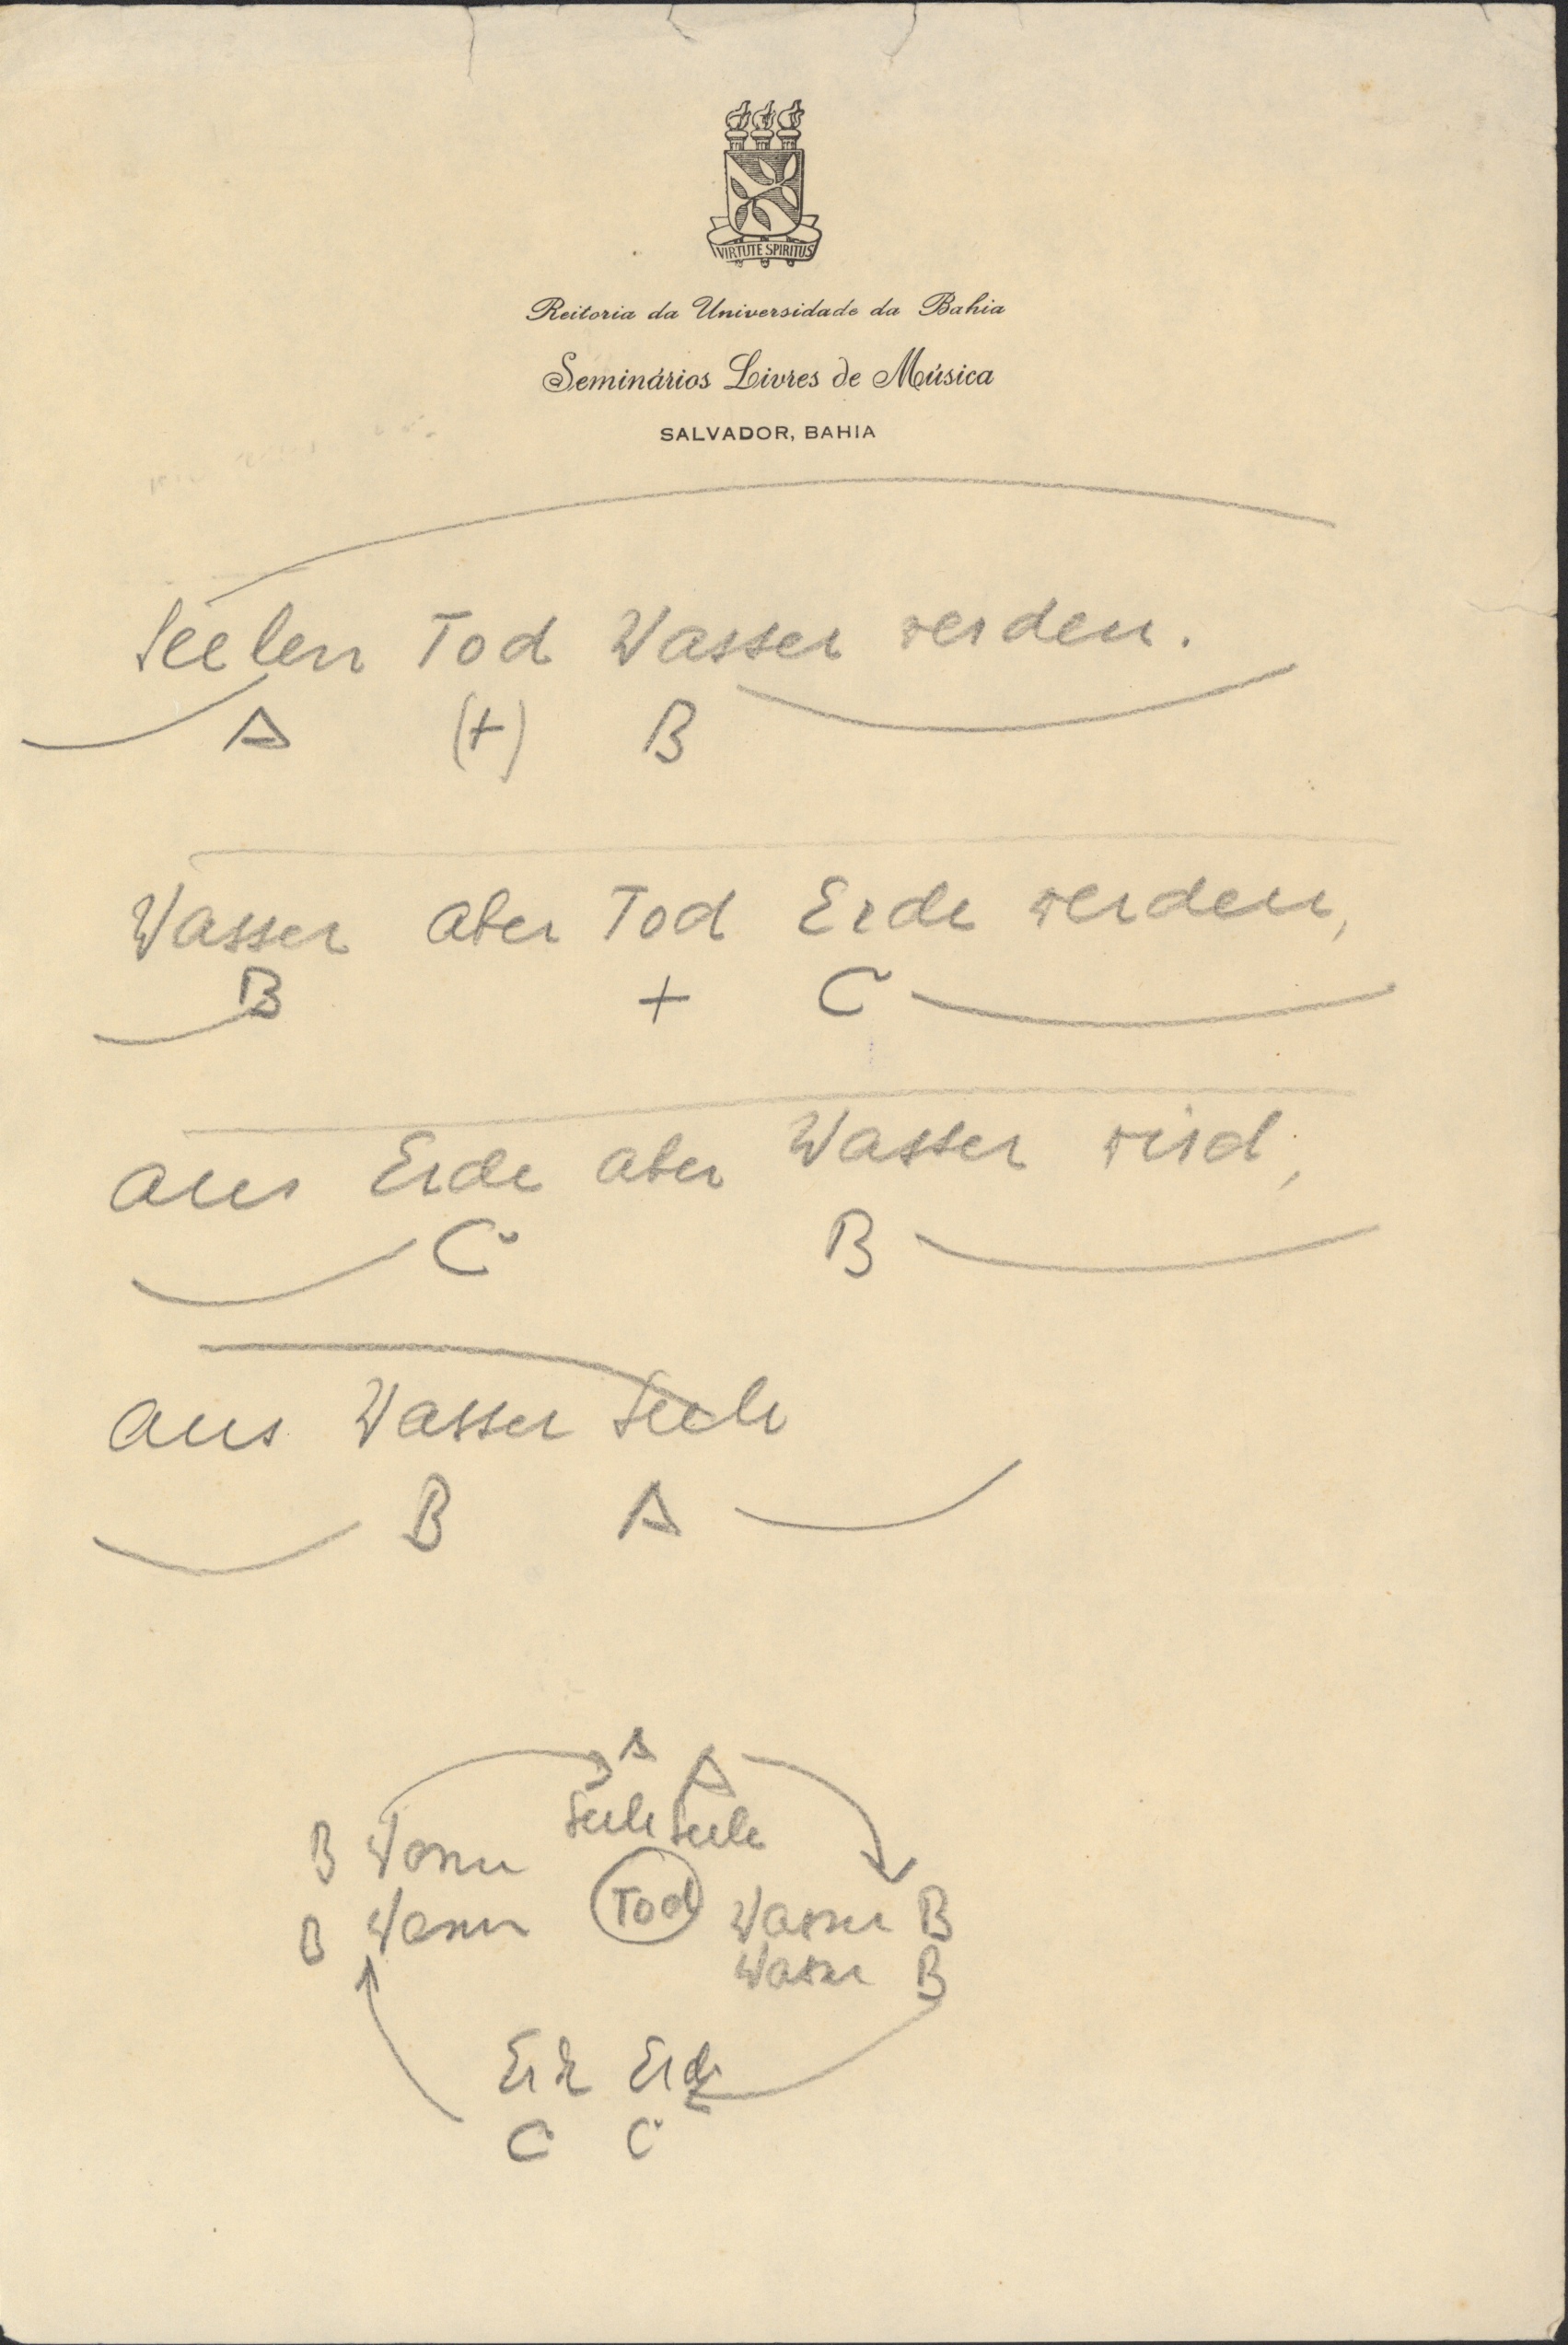 VIRTUTE SPIRITUS
Reitoria da Universidade da Bahia
Seminários Livres de Música
SALVADOR, BAHIA
Seelen Tod Wasser werden.
A (+) B
Wasser aber Tod Erde werden,
B + C
aus Erde aber Wasser wird,
C B
aus Wasser Seele
B A
A A
Seele Seele
B Wasser
Tod
B Wasser Wasser B
Wasser B
Erde Erde
C C